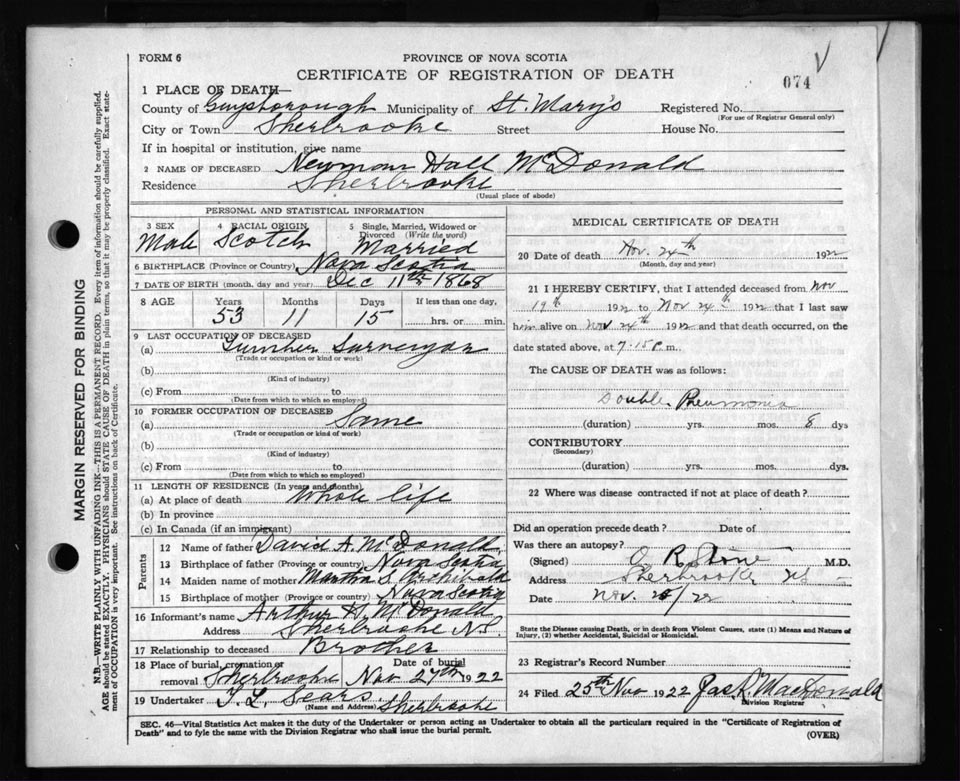 FORM 6
PROVINCE OF NOVA SCOTIA
CERTIFICATE OF REGISTRATION OF DEATH
074
1 PLACE OF DEATH—
County of Guysborough Municipality of St. Mary's Registered No.
(For use of Registrar General only)
City or Town Sherbrooke Street House No.
If in hospital or institution, give name
2 NAME OF DECEASED Newman Hall McDonald
Residence Sherbrooke
(Usual place of abode)
PERSONAL AND STATISTICAL INFORMATION
3 SEX 4 RACIAL ORIGIN 5 Single, Married, Widowed or Divorced (Write the word)
Male Scotch Married
6 BIRTHPLACE (Province or Country) Nova Scotia
7 DATE OF BIRTH (month, day, and year) Dec 11th 1868
8 AGE Years Months Days If less than one day,
53 11 15 hrs. or min.
9 LAST OCCUPATION OF DECEASED
(a) Lumber Surveyor
(Trade or occupation or kind of work)
(b)
(Kind of industry)
(c) From to
(Date from which to which so employed)
10 FORMER OCCUPATION OF DECEASED
(a) Same
(Trade or occupation or kind of work)
(b)
(Kind of industry)
(c) From to
(Date from which to which so employed)
11 LENGTH OF RESIDENCE (In years and months)
(a) At place of death Whole life
(b) In province
(c) In Canada (if an immigrant)
Parents
12 Name of father David A. McDonald
13 Birthplace of father (Province or country) Nova Scotia
14 Maiden name of mother Martha S Archibald
15 Birthplace of mother (Province or country) Nova Scotia
16 Informant's name Arthur H. McDonald
Address Sherbrooke N.S.
17 Relationship to deceased Brother
18 Place of burial, cremation or Date of burial
removal Sherbrooke Nov 27th 1922
19 Undertaker T. L. Sears
(Name and Address) Sherbrooke
MEDICAL CERTIFICATE OF DEATH
20 Date of death Nov. 24th 1922
(Month, day and year)
21 I HEREBY CERTIFY, that I attended deceased from Nov
19th 1922 to Nov 24th 1922 that I last saw
him alive on Nov 24th 1922 and that death occurred, on the
date stated above, at 7.15 P.m.
The CAUSE OF DEATH was as follows:
Double Pneumonia
(duration) yrs. mos. 8 dys
CONTRIBUTORY
(Secondary)
(duration) yrs. mos. dys.
22 Where was disease contracted if not at place of death?
Did an operation precede death? Date of
Was there an autopsy?
(Signed) R Stone M.D.
Address Sherbrooke NS
Date Nov. 25/22
State the Disease causing Death, or in death from Violent Causes, state (1) Means and Nature of
Injury, (2) whether Accidental, Suicidal or Homicidal.
23 Registrar's Record Number
24 Filed 25th Nov 1922 Jas. R. MacDonald
Division Registrar
SEC. 46—Vital Statistics Act makes it the duty of the Undertaker or person acting as Undertaker to obtain all the particulars required in the "Certificate of Registration of
Death" and to fyle the same with the Division Registrar who shall issue the burial permit.
(OVER)
MARGIN RESERVED FOR BINDING
N.B.—WRITE PLAINLY WITH UNFADING INK—THIS IS A PERMANENT RECORD. Every item of information should be carefully supplied.
AGE should be stated EXACTLY. PHYSICIANS should STATE CAUSE OF DEATH in plain terms, so that it may be properly classified. Exact statement
of OCCUPATION is very important. See instructions on back of Certificate.